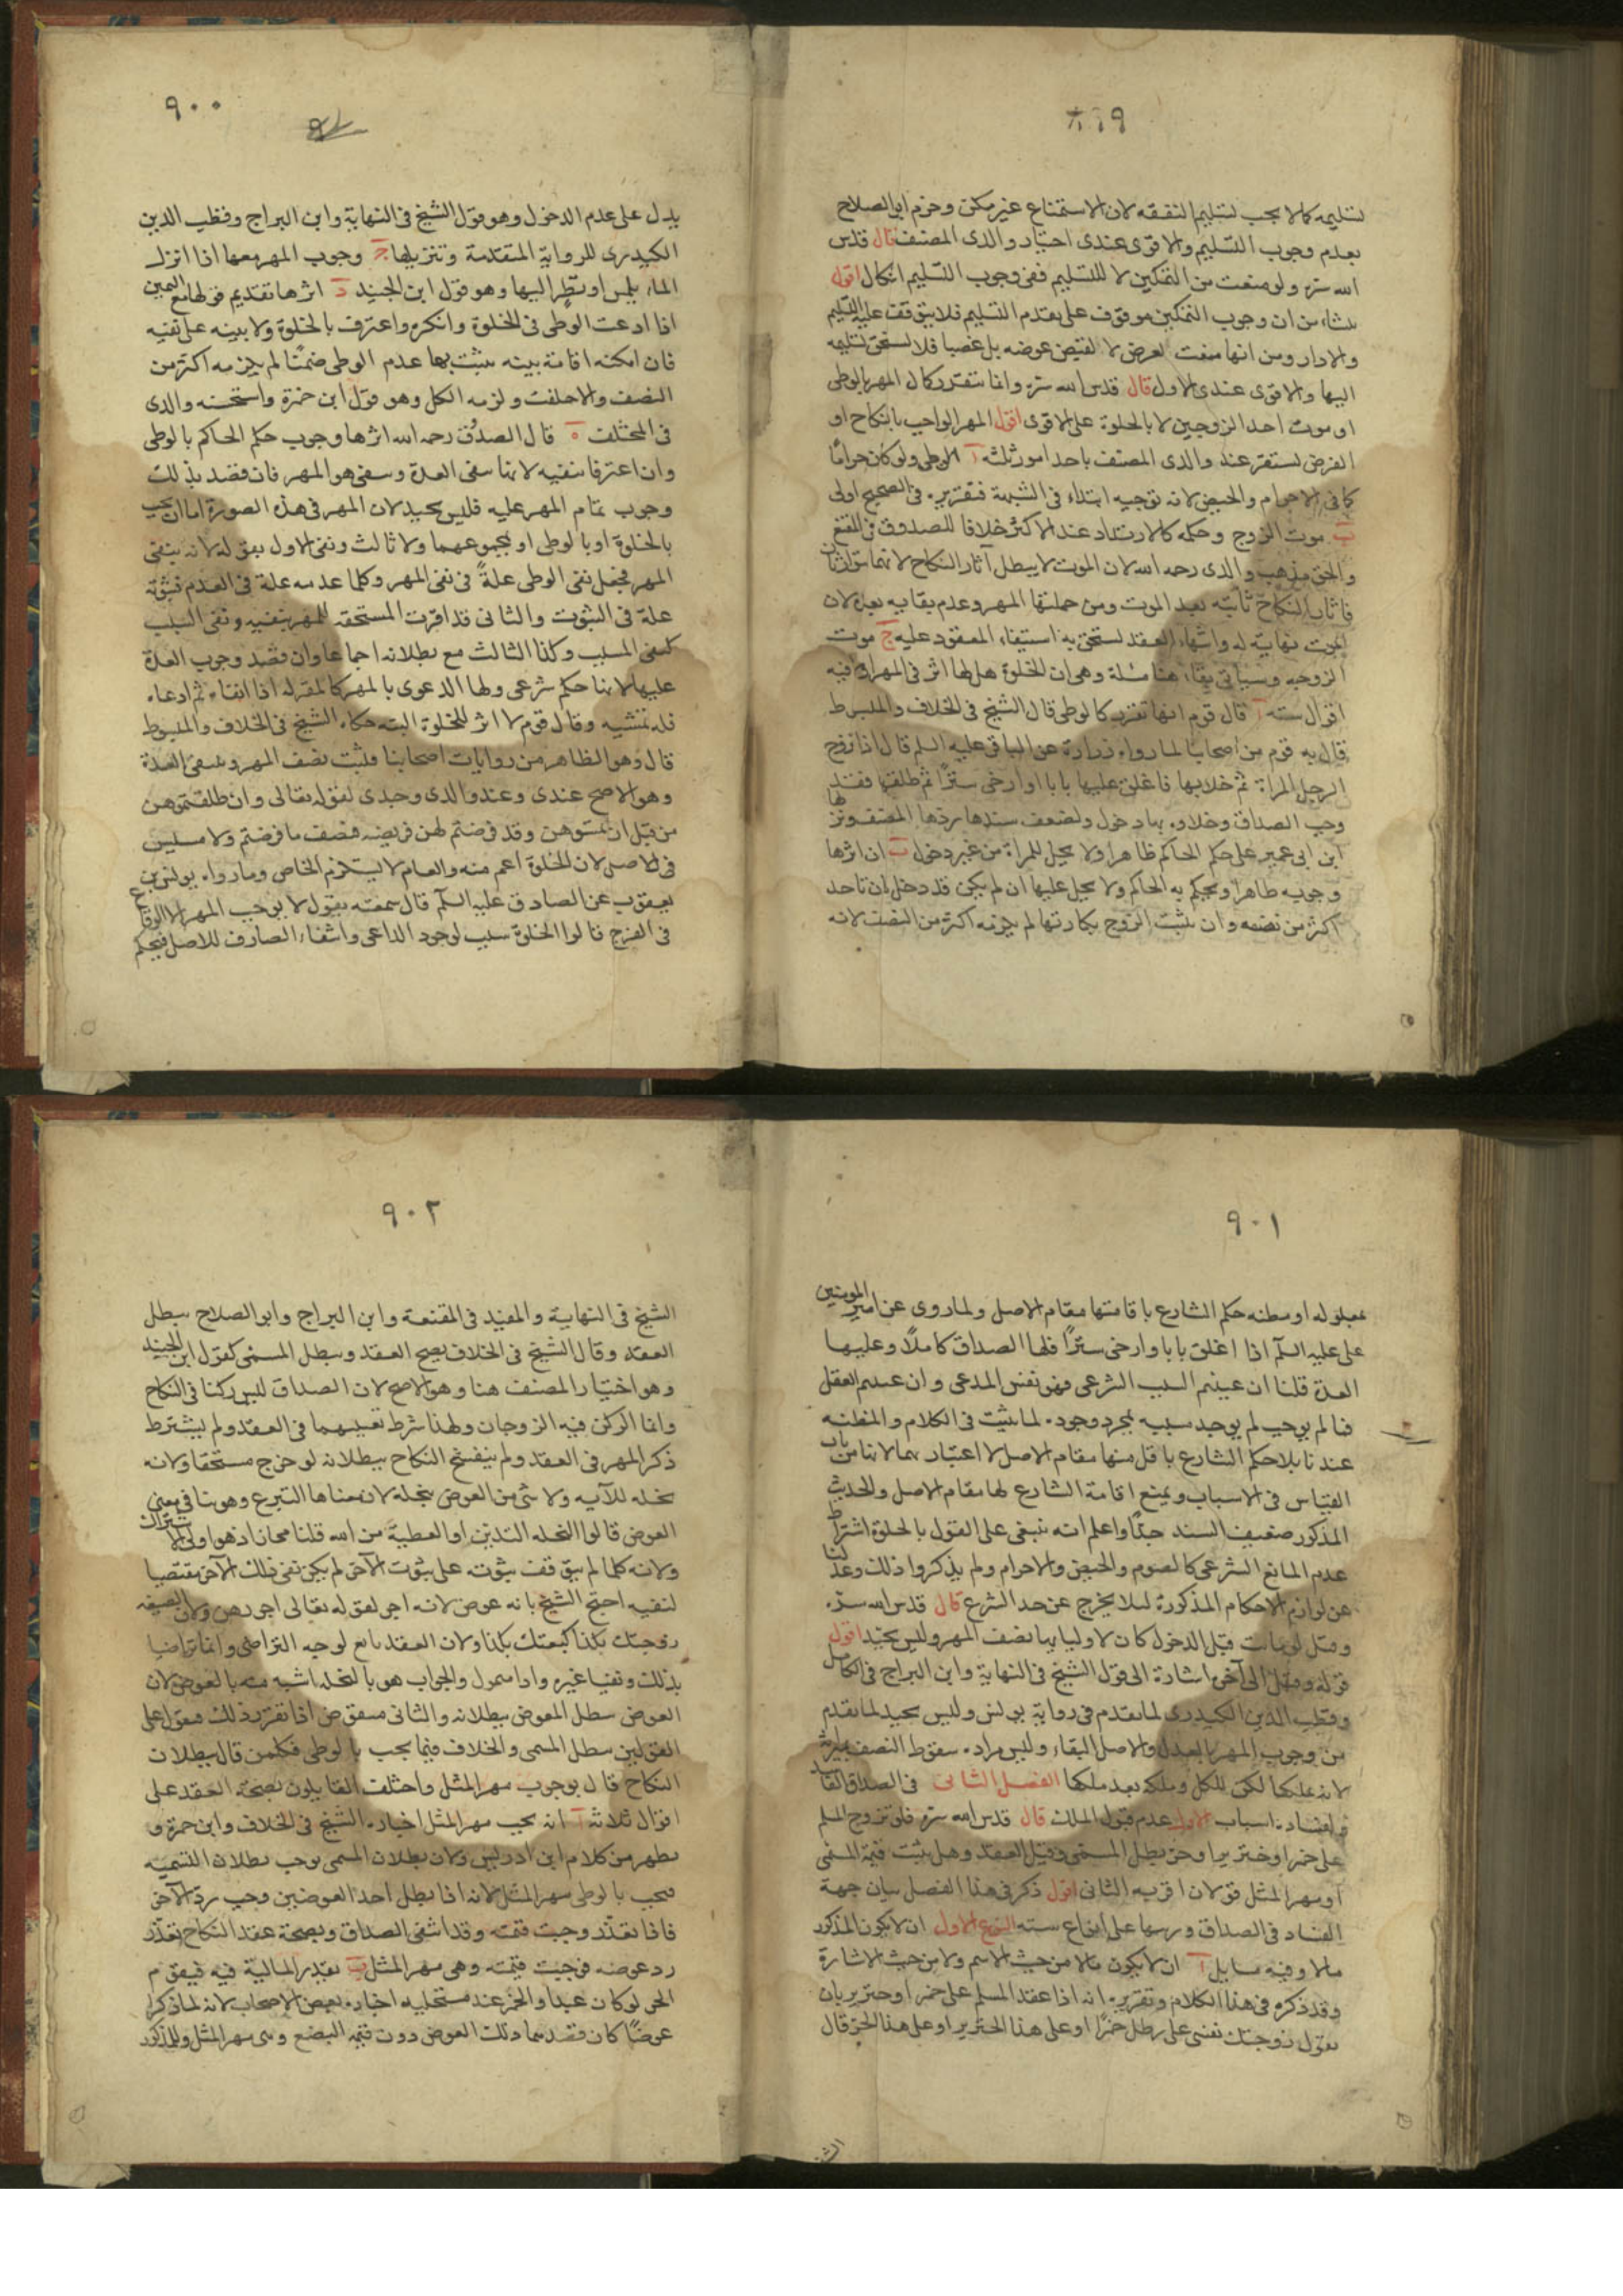 ٨٩٩
تسليمه كما لا يجب تسليم النفقه لان الاستمتاع غير ممكن وجزم ابو الصلاح
بعدم وجوب التسليم والاقوى عندى اختيار والدى المصنف قال قدس
الله سره ولو منعت من التمكين لا للتسليم ففى وجوب التسليم اشكال اقول
ينشاء من ان وجوب التمكين موقوف على تقدم التسليم فلا يتوقف عليه التسليم
والا دار ومن انها منعت لعرض لا لقبض عوضه بل غصبا فلا تستحق تسليمه
اليها والاقوى عندى الاول قال قدس الله سره وانما يتقرر كمال المهر بالوطى
او موت احد الزوجين لا بالخلوة على الاقوى اقول المهر الواجب بالنكاح او
الفرض يستقر عند والدى المصنف باحد امور ثلثه آ الوطى ولو كان حراما
كما فى الاحرام والحيض لانه توجيه ابتداء فى الشبهة فتقريره فى الصحيح اولى
ب موت الزوج وحكمه كالارتداد عند الاكثر خلافا للصدوق فى المقنع
والحق مذهب والدى رحمه الله لان الموت لا يبطل آثار النكاح لانهما يتوارثان
فآثار النكاح ثابته بعد الموت ومن جملتها المهر وعدم بقايه بعده لان
الموت نهاية له وانتهاء العقد تستحق به استيفاء المعقود عليه ج موت
الزوجه وسياتى بقاء هنا مسئلة وهى ان الخلوة هل لها اثر فى المهر ام لا فيه
اقوال سته آ قال قوم انها تقرره كالوطى قال الشيخ فى الخلاف والمبسوط
قال به قوم من اصحابنا لما رواه زرارة عن الباقر عليه السلم قال اذا تزوج
الرجل المراة ثم خلا بها فاغلق عليها بابا او ارخى سترا ثم طلقها فقد
وجب الصداق وخلاوه بها دخول ولضعف سندها ردها المصنف ونزلها
ابن ابى عمير على حكم الحاكم ظاهرا ولا يحل للمراة من غير دخول ب ان اثرها
وجوبه ظاهرا ويحكم به الحاكم ولا يحل عليها ان لم يكن قد دخل ان تاخد
اكثر من نصفه وان يثبت الزوج بكارتها لم يلزمه اكثر من النصف لانه
٩٠٠
يدل على عدم الدخول وهو قول الشيخ فى النهاية وابن البراج وقطب الدين
الكيدرى للرواية المتقدمة وتنزيلها ج وجوب المهر معها اذا انزل
الماء بلمس او نظر اليها وهو قول ابن الجنيد د اثرها تقديم قولها مع اليمين
اذا ادعت الوطى فى الخلوة وانكره واعترف بالخلوة ولا بينه على نفيه
فان امكنه اقامة بينه يثبت بها عدم الوطى ضمنا لم يلزمه اكثر من
النصف والا حلفت ولزمه الكل وهو قول ابن حمزة واستحسنه والدى
فى المختلف ه قال الصدوق رحمه الله اثرها وجوب حكم الحاكم بالوطى
وان اعترفا بنفيه لانها تنفى العدة وينفى هو المهر فان قصد بذلك
وجوب تمام المهر عليه فليس بجيد لان المهر فى هذه الصورة اما ان يجب
بالخلوة او بالوطى او بمجموعهما ولا ثالث ونفى الاول بقوله لانه ينفى
المهر فجعل نفى الوطى علةً فى نفى المهر وكلما عدمه علة فى العدم فثبوته
علة فى الثبوت والثانى قد اقرت المستحقه للمهر بنفيه ونفى السبب
كنفى المسبب وكذا الثالث مع بطلانه اجماعا وان قصد وجوب العدة
عليها لانها حكم شرعى ولها الدعوى بالمهر كالمقر له اذا انفاه ثم ادعاه
فله تمشيه و وقال قوم لا اثر للخلوة البته حكاه الشيخ فى الخلاف والمبسوط
قال وهو الظاهر من روايات اصحابنا فيثبت نصف المهر وينتفى العدة
وهو الاصح عندى وعند والدى وجدى لقوله تعالى وان طلقتموهن
من قبل ان تمسوهن وقد فرضتم لهن فريضه فنصف ما فرضتم ولا مسيس
فى الاصل لان الخلوة اعم منه والعام لا يستلزم الخاص وما رواه يونس بن
يعقوب عن الصادق عليه السلم قال سمعته يقول لا يوجب المهر الا الوقاع
فى الفرج قالوا الخلوة سبب لوجود الداعى وانتفاء الصارف للاصل فيحكم
٩٠١
بمعلوله او مظنه حكم الشارع باقامتها مقام الاصل ولما روى عن امير المومنين
على عليه السلم اذا اغلق بابا وارخى سترا فلها الصداق كاملا وعليها
العدة قلنا ان عينتم السبب الشرعى فهو نفس المدعى وان عنيتم العقل
فما لم يوجب لم يوجد مسببه بمجرد وجوده لما يثبت فى الكلام والمظنه
عندنا بلا حكم الشارع باقامتها مقام الاصل لا اعتبار بها لانها من باب
القياس فى الاسباب ويمنع اقامة الشارع لها مقام الاصل والحديث
المذكور ضعيف السند جدا واعلم انه ينبغى على القول بالخلوة اشتراط
عدم المانع الشرعى كالصوم والحيض والاحرام ولم يذكروا ذلك وعدلنا
عن لوازم الاحكام المذكورة ليلا يخرج عن حد الشرع قال قدس الله سره
وقيل لو ماتت قبل الدخول كان لاوليايها نصف المهر وليس بجيد اقول
قوله وقيل الى آخره اشارة الى قول الشيخ فى النهاية وابن البراج فى الكامل
وقطب الدين الكيدرى لما تقدم فى رواية يونس وليس بجيد لما تقدم
من وجوب المهر بالعقد والاصل البقاء وليس مراده سقوط النصف بميراثه
لانه عليكما لكن للكل وملكه بعد ملكها الفصل الثانى فى الصداق الفاسد
ولفساده اسباب الاول عدم قبول الملك قال قدس الله سره فلو تزوج المسلم
على خمر او خنزير او حر بطل المسمى وقيل العقد وهل يثبت قيمة المسمى
او مهر المثل قولان اقربه الثانى اقول ذكر فى هذا الفصل بيان جهة
الفساد فى الصداق ورسمها على انواع سته النوع الاول ان لا يكون المذكور
مالا وفيه مسايل آ ان لا يكون مالا من حيث الاسم ولا من حيث الاشارة
وقد ذكره فى هذا الكلام وتقريره انه اذا عقد المسلم على خمر او خنزير بان
يقول زوجتك نفسى على رطل خمرا او على هذا الخنزير او على هذا الحر قال
٩٠٢
الشيخ فى النهاية والمفيد فى المقنعة وابن البراج وابو الصلاح يبطل
العقد وقال الشيخ فى الخلاف يصح العقد ويبطل المسمى كقول ابن الجنيد
وهو اختيار المصنف هنا وهو الاصح لان الصداق ليس ركنا فى النكاح
وانما الركن فيه الزوجان ولهذا شرط تعيينهما فى العقد ولم يشترط
ذكر المهر فى العقد ولم ينفسخ النكاح ببطلانه لو خرج مستحقا ولانه
نحله للآيه ولا شى من العوض بنحلة لان معناها التبرع وهو ينافى معنى
العوض قالوا النحله التدين او العطية من الله قلنا مجاز اذ هو اولى من الاشتراك
ولانه كلما لم يتوقف ثبوته على ثبوت الآخر لم يكن نفى ذلك الآخر مقتضيا
لنفيه احتج الشيخ بانه عوض لانه اجر لقوله تعالى اجورهن ولان الصيغه
زوجتك بكذا كبعتك بكذا ولان العقد تابع لوجه التراضى وانما تراضيا
بذلك ونفيا غيره والجواب هو بالنحله اشبه منه بالعوض لان
العوض يبطل المعوض ببطلانه والثانى منقوض اذا تقرر ذلك فنقول على
القولين يبطل المسمى والخلاف فيما يجب بالوطى فكلمن قال ببطلان
النكاح قال بوجوب مهر المثل واختلف القايلون بصحة العقد على
اقوال ثلاثة آ انه يجب مهر المثل اختاره الشيخ فى الخلاف وابن حمزة و
يظهر من كلام ابن ادريس ولان بطلان المسمى يوجب بطلان التسميه
فيجب بالوطى مهر المثل لانه اذا بطل احد العوضين وجب رد الآخر
فاذا تعذر وجبت قيمته وقد انتفى الصداق وبصحة عقد النكاح تعذر
رد عوضه فوجبت قيمته وهى مهر المثل ب تقدر المالية فيه فيقوم
الحر لو كان عبدا والخمر عند مستحليه اختاره بعض الاصحاب لانه لما ذكرا
عوضا كان قصدهما ذلك العوض دون قيمه البضع وهى مهر المثل والمذكور